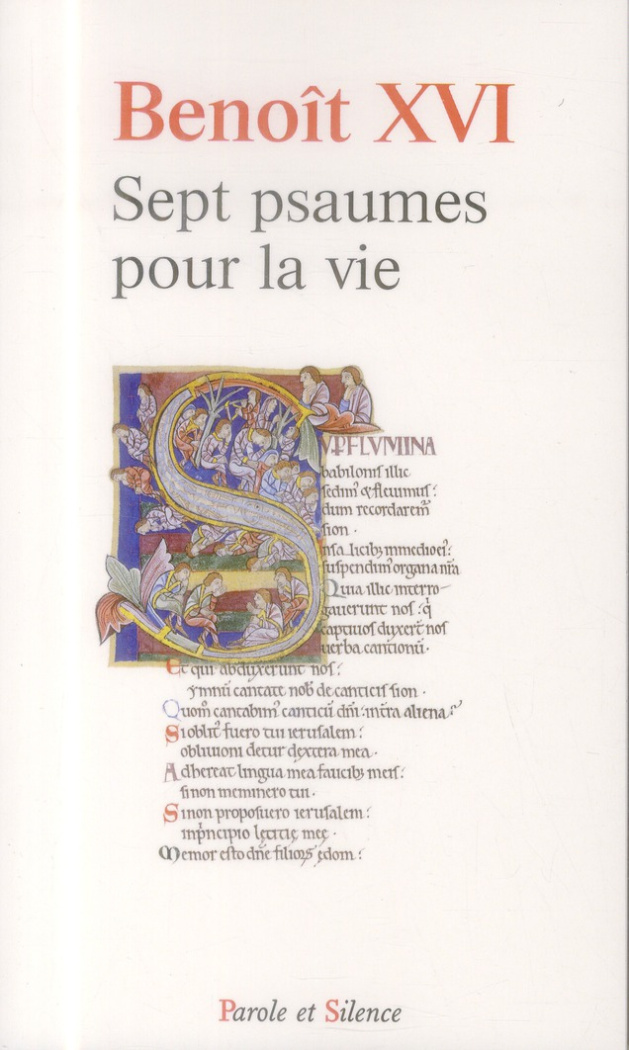 Benoît XVI
Sept psaumes
pour la vie
SVP FLVMINA
babilonis illic
sedim' & fleuimus:
dum recordarem̄
sion ·
In salicib; in medio ei':
suspendim' organa nr̄a
Quia illic interro-
gauerunt nos: q̇
captiuos duxer̄t nos
uerba cantionū ·
Et qui abduxerunt nos:
ymnū cantate nob' de canticis sion ·
Quom̊ cantabim' canticū dn̄i: in tr̄a aliena?
Si oblit' fuero tui ierusalem:
obliuioni detur dextera mea ·
Adhereat lingua mea faucib; meis:
si non meminero tui ·
Si non proposuero ierusalem:
in p̄ncipio lętitię meę ·
Memor esto dn̄e filioꝝ edom:
Parole et Silence